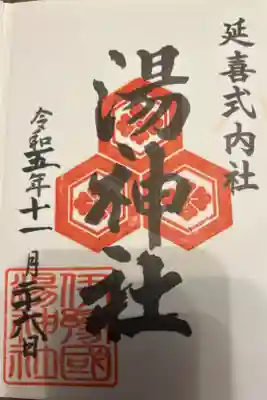 延喜式内社
湯神社
令和五年十一月二十六日
伊豫國
湯神社